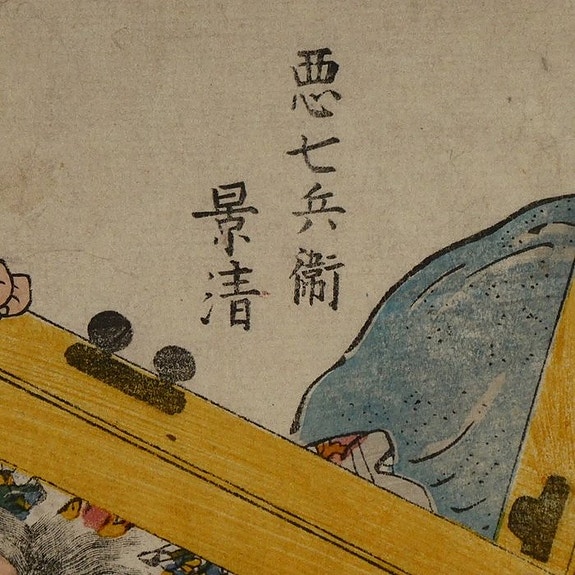 悪七兵衛
景清